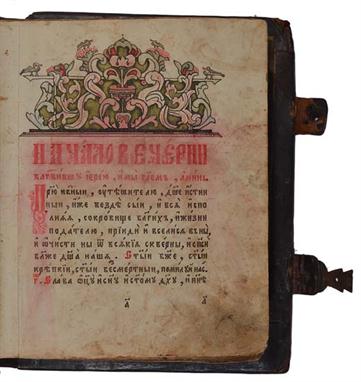 НАЧАЛО ВЕЧЕРНИ
Цр҃ю нб҃ныи, оутѣшителю, дш҃е истин
ныи, иже вездѣ сыи, и всѧ испо
лнѧѧ, сокровище бл҃гихъ, и жизни
подателю, прїиди и вселисѧ въ ны,
и ѡчисти ны ѿ всѧкїѧ скверны, и сп҃си
бл҃же дш҃а нашѧ. Ст҃ыи бж҃е, ст҃ыи
крѣпкїи, ст҃ыи бесмертныи, помилуи нас.
г҃. Слава ѡц҃у и сн҃у и ст҃ому дх҃у, и нн҃ѣ
а҃